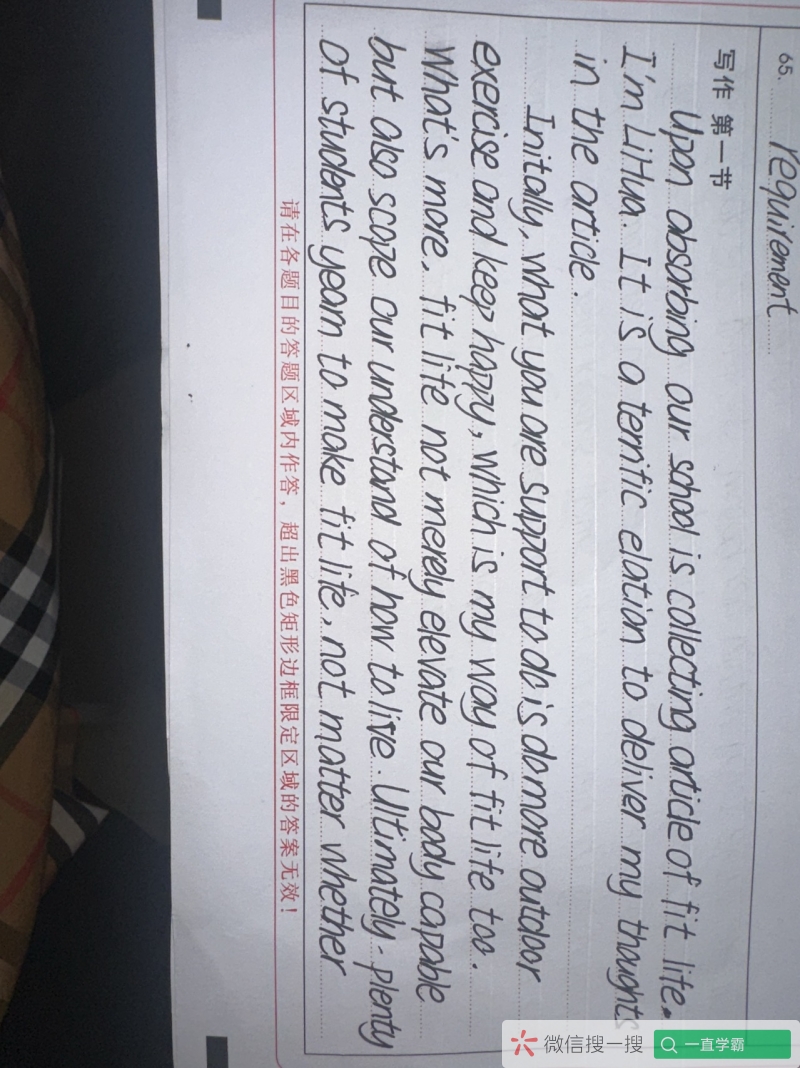 65. requirement
写作 第一节
Upon absorbing our school is collecting article of fit life.
I'm LiHua. It is a terrific elation to deliver my thoughts
in the article.
Initally, what you are support to do is do more outdoor
exercise and keep happy, which is my way of fit life too.
What's more, fit life not merely elevate our body capable
but also scope our understand of how to live. Ultimately, plenty
of students yearn to make fit life, not matter whether
请在各题目的答题区域内作答，超出黑色矩形边框限定区域的答案无效！
微信搜一搜 一直学霸